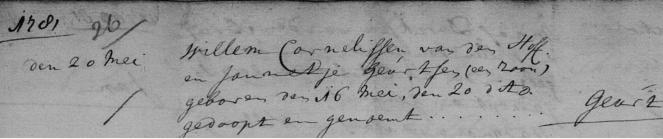 1781
26
den 20 Mei
Willem Cornelissen van den Hoff.
en Jannetje Geurtsen (een zoon)
geboren den 16 Mei, den 20 dito
gedoopt en genoemt . . . . . . . . Geurt